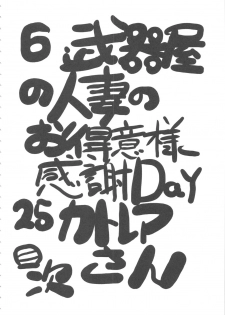 6 武器屋
の人妻の
お得意様
感謝Day
25カトレア
さん
目次